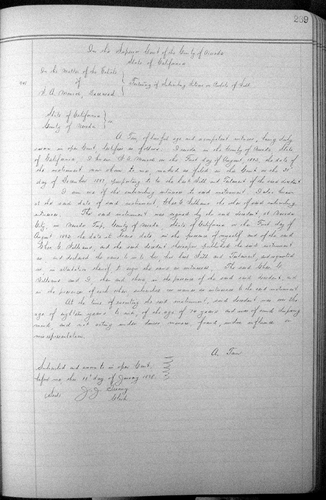 259
In the Superior Court of the County of Nevada
State of California
In the Matter of the Estate
of
Deceased
Testimony of Subscribing Witness on Probate of Will
State of California
County of Nevada
ss
A. Tam, of lawful age and a competent witness, being duly
sworn in open Court, testifies as follows: I reside in the County of Nevada, State
of California. I knew on the First day of August, the date of
the instrument now shown to me, marked as filed in the Court on the
day of December 1897, purporting to be the Last Will and Testament of the said decedent
I am one of the subscribing witnesses to said instrument. I also knew
at the said date of said instrument, Chas. E. Williams the other of said subscribing
witnesses. The said instrument was signed by the said decedent, at Nevada
City, in Nevada County of Nevada, State of California on the First day of
August the date it bears date, in the presence of myself and of the said
Chas. E. Williams, and the said decedent thereupon published the said instrument
as and declared the same to us to be, his Last Will and Testament, and requested
us, in attestation thereof to sign the same as witnesses. The said Chas. E.
Williams and I, then and there, in the presence of the said decedent, and
in the presence of each other subscribed our names as witnesses to the said instrument
At the time of executing the said instrument, said decedent was over the
age of eighteen years, to wit, of the age of 70 years and was of sound disposing
mind, and not acting under duress, menace, fraud, undue influence or
misrepresentation.
A. Tam
Subscribed and sworn to in open Court,
before me this day of January 1898.
Clerk